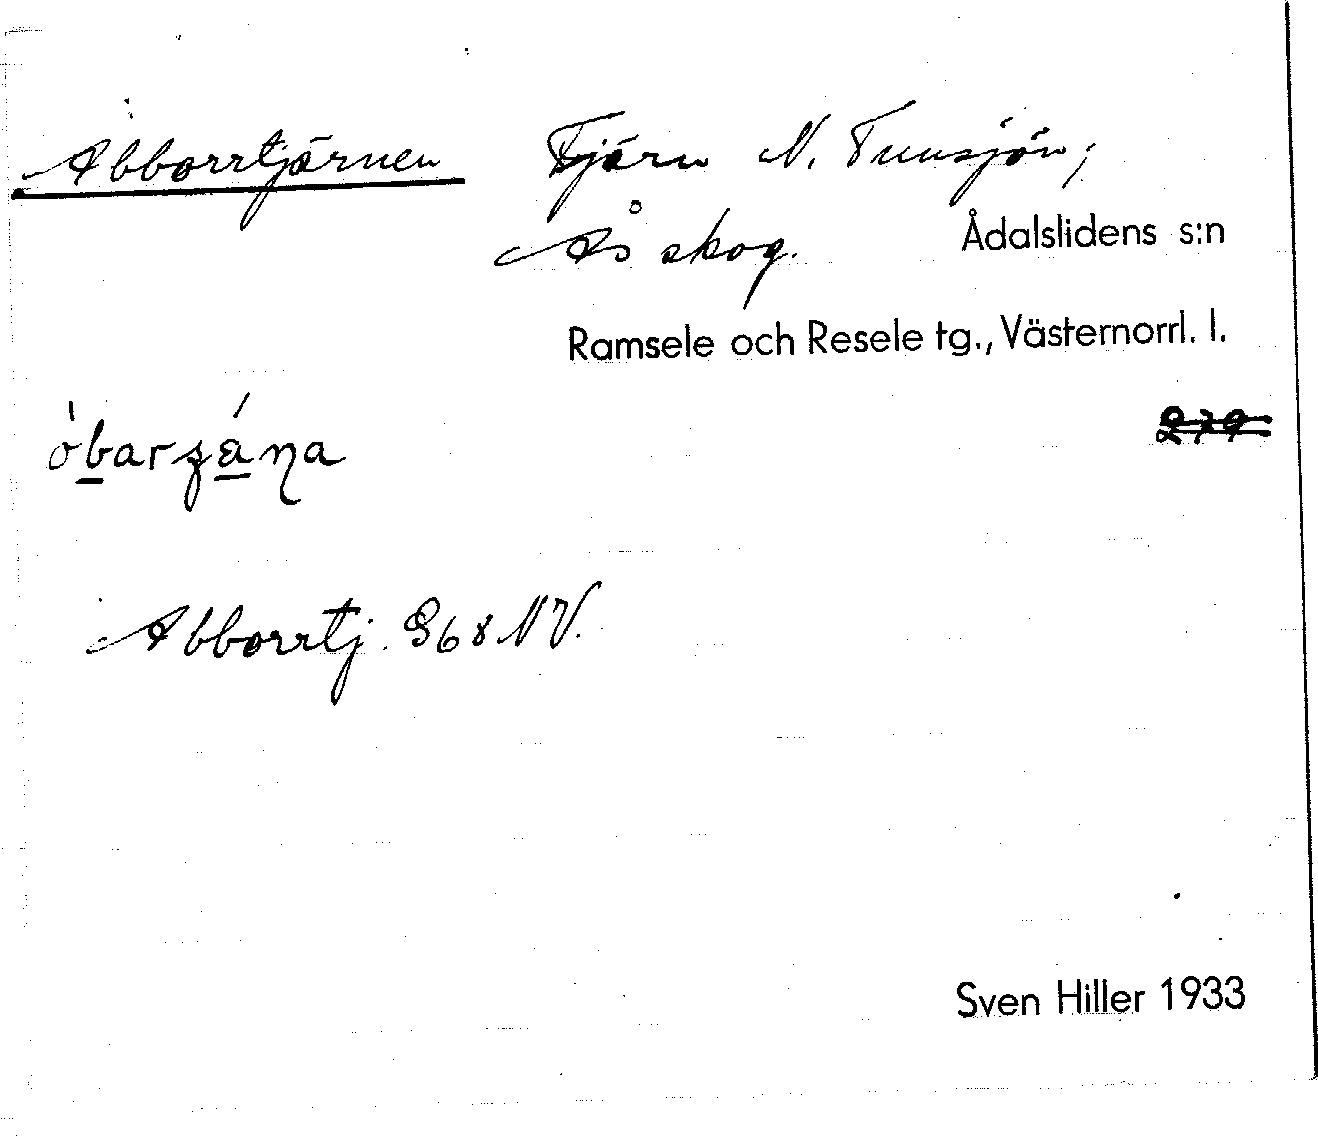 Abborrtjärnen Tjärn N. Tunsjön;
Ås skog. Ådalslidens s:n
Ramsele och Resele tg., Västernorrl. l.
279
Abborrtj. G68 NV.
Sven Hiller 1933